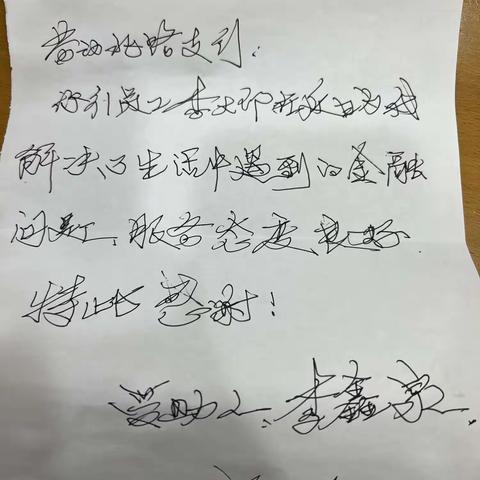 劳动北路支行:
你行员工李 在 日为我
解决了生活中遇到的金融
问题, 服务态度极好.
特此感谢!
受助人: 李鑫家.